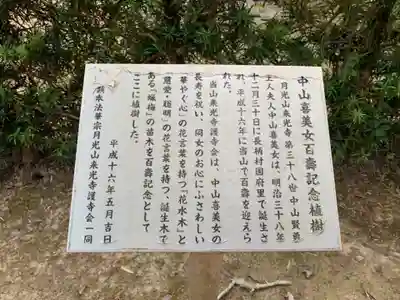 中山喜美女百壽記念植樹
月光山来光寺第三十八世中山賢勇
主人夫人中山喜美女は、明治三十八年
十二月三十日に長柄村国府里で誕生さ
れ、平成十六年に当山で百壽を迎えら
れた。
当山来光寺護寺会は、中山喜美女の
長寿を祝い、同女のお心にふさわしい
華やぐ心の花言葉を持つ「花水木」と
慈愛・聰明の花言葉を持つ、誕生木で
ある「蝋梅」の苗木を百壽記念として
ここに植樹した。
平成十六年五月吉日
顕本法華宗月光山来光寺護寺会一同